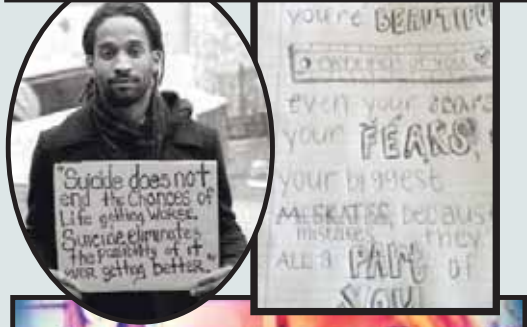 "Suicide does not
end the Chances of
Life getting WORSE.
Suicide eliminates
the Possibility of it
ever getting better."
you're BEAUTIFUL
even your scars
your FEARS,
your biggest
MISKATES, because
mistakes they
ALL a PART of
YOU